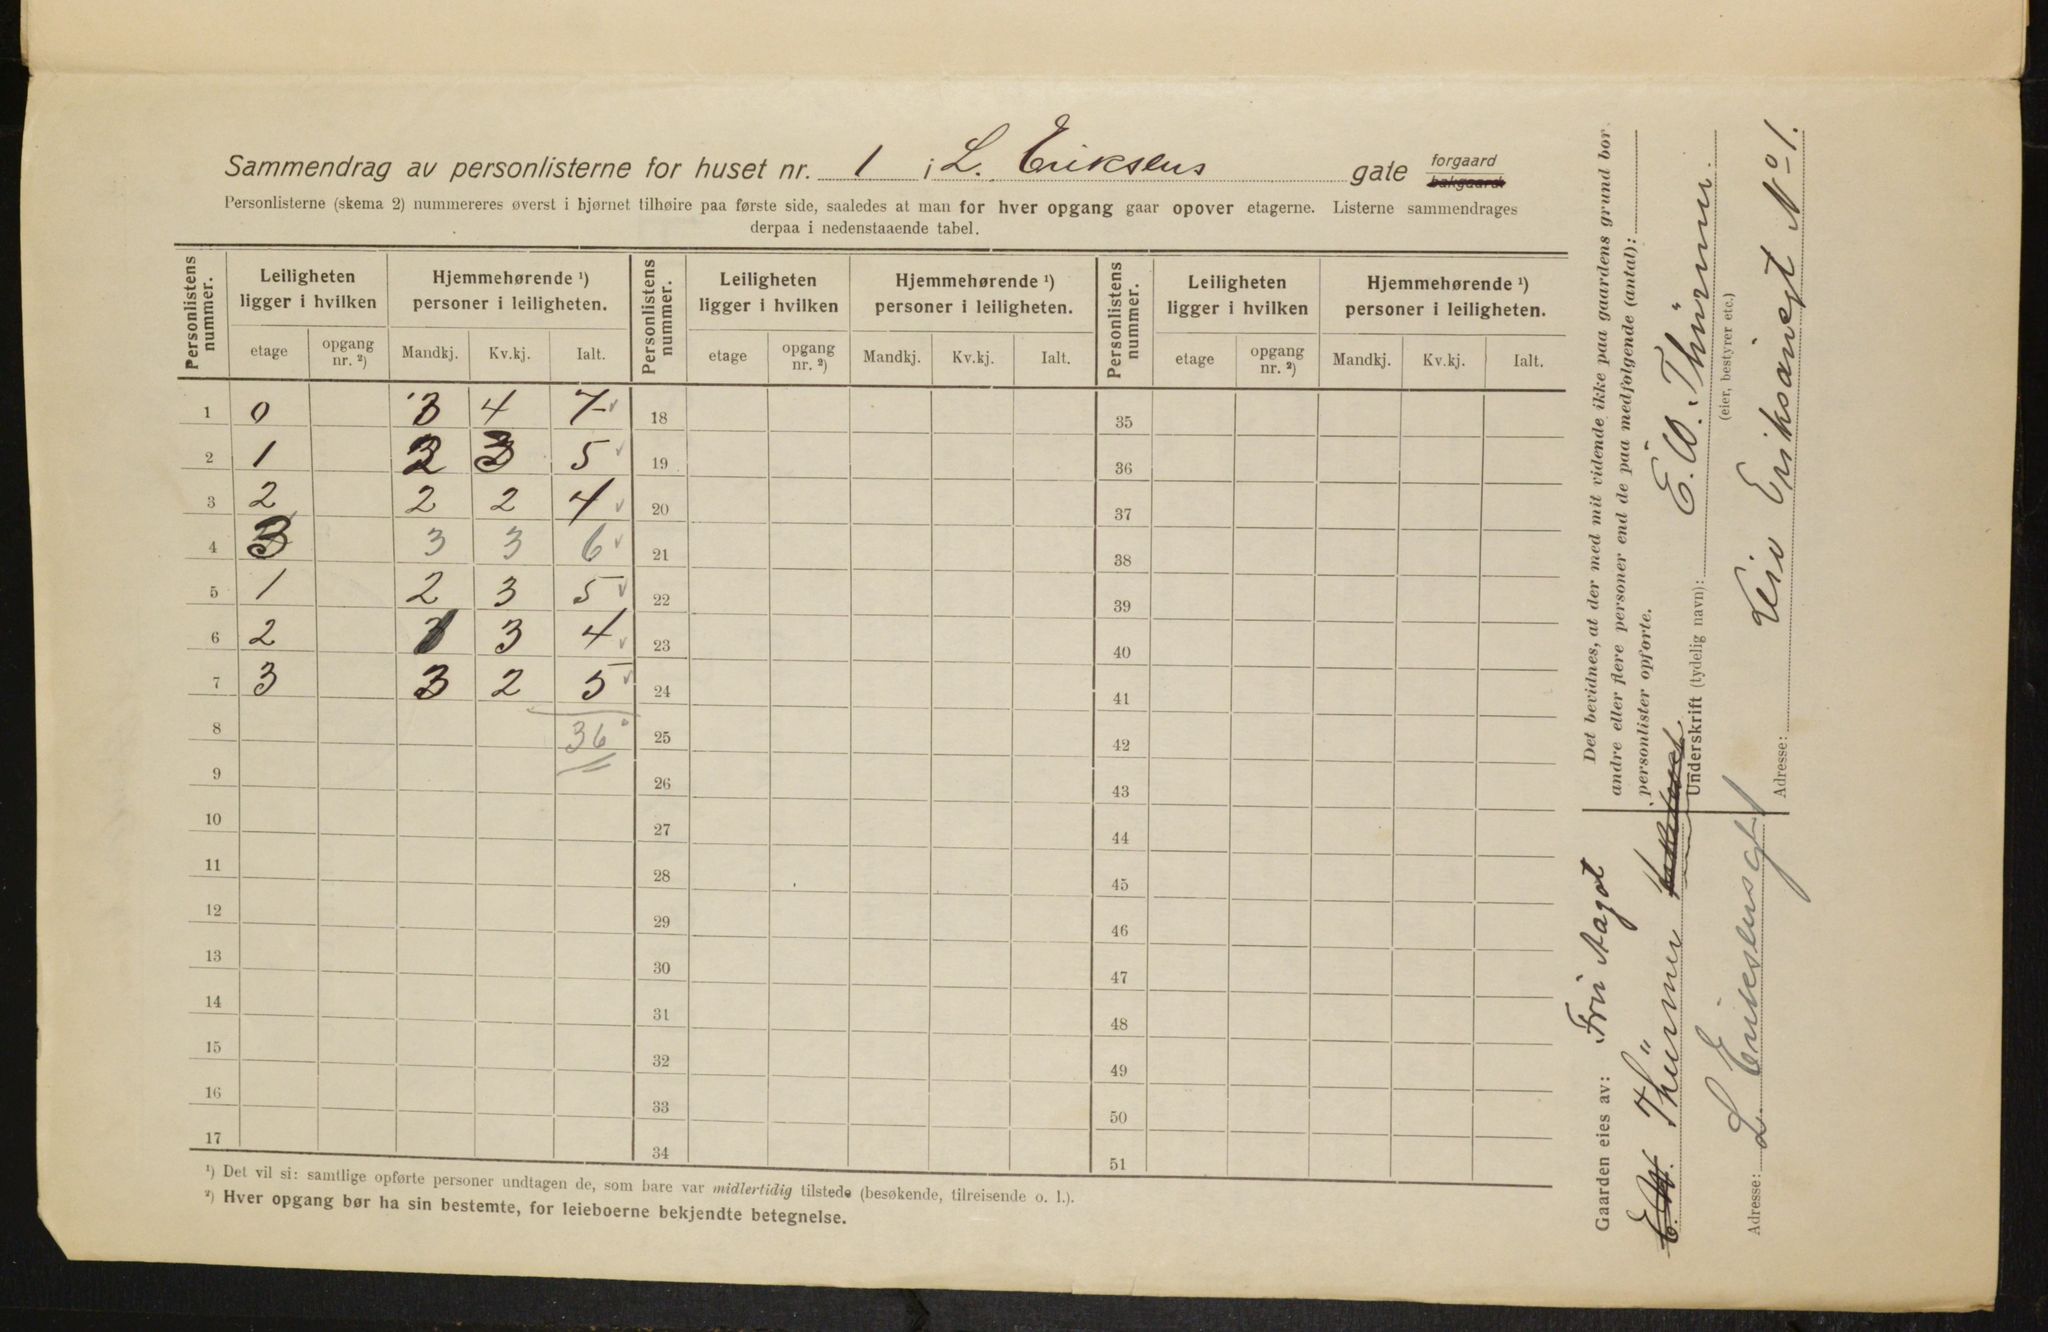 Sammendrag av personlisterne for huset nr. 1 i L. Eriksens gate forgaard bakgaard
Personlisterne (skema 2) nummereres øverst i hjørnet tilhøire paa første side, saaledes at man for hver opgang gaar opover etagerne. Listerne sammendrages
derpaa i nedenstaaende tabel.
Personlistens nummer. Leiligheten ligger i hvilken Hjemmehørende ¹) personer i leiligheten. Personlistens nummer. Leiligheten ligger i hvilken Hjemmehørende ¹) personer i leiligheten. Personlistens nummer. Leiligheten ligger i hvilken Hjemmehørende ¹) personer i leiligheten.
etage opgang nr. ²) Mandkj. Kv.kj. Ialt. etage opgang nr. ²) Mandkj. Kv.kj. Ialt. etage opgang nr. ²) Mandkj. Kv.kj. Ialt.
1 0 3 4 7 18 35
2 1 2 3 5 19 36
3 2 2 2 4 20 37
4 3 3 3 6 21 38
5 1 2 3 5 22 39
6 2 1 3 4 23 40
7 3 3 2 5 24 41
8 36 25 42
9 26 43
10 27 44
11 28 45
12 29 46
13 30 47
14 31 48
15 32 49
16 33 50
17 34 51
¹) Det vil si: samtlige opførte personer undtagen de, som bare var midlertidig tilstede (besøkende, tilreisende o. l.).
²) Hver opgang bør ha sin bestemte, for leieboerne bekjendte betegnelse.
Det bevidnes, at der med mit vidende ikke paa gaardens grund bor
andre eller flere personer end de paa medfølgende (antal):
personlister opførte.
Underskrift (tydelig navn): E. W. Thürmer.
(eier, bestyrer etc.)
Adresse: Leiv Eriksönsgt No 1.
Gaarden eies av: Fru Aagot
E.W. Thürmer
Adresse: L Eriksensgt 1